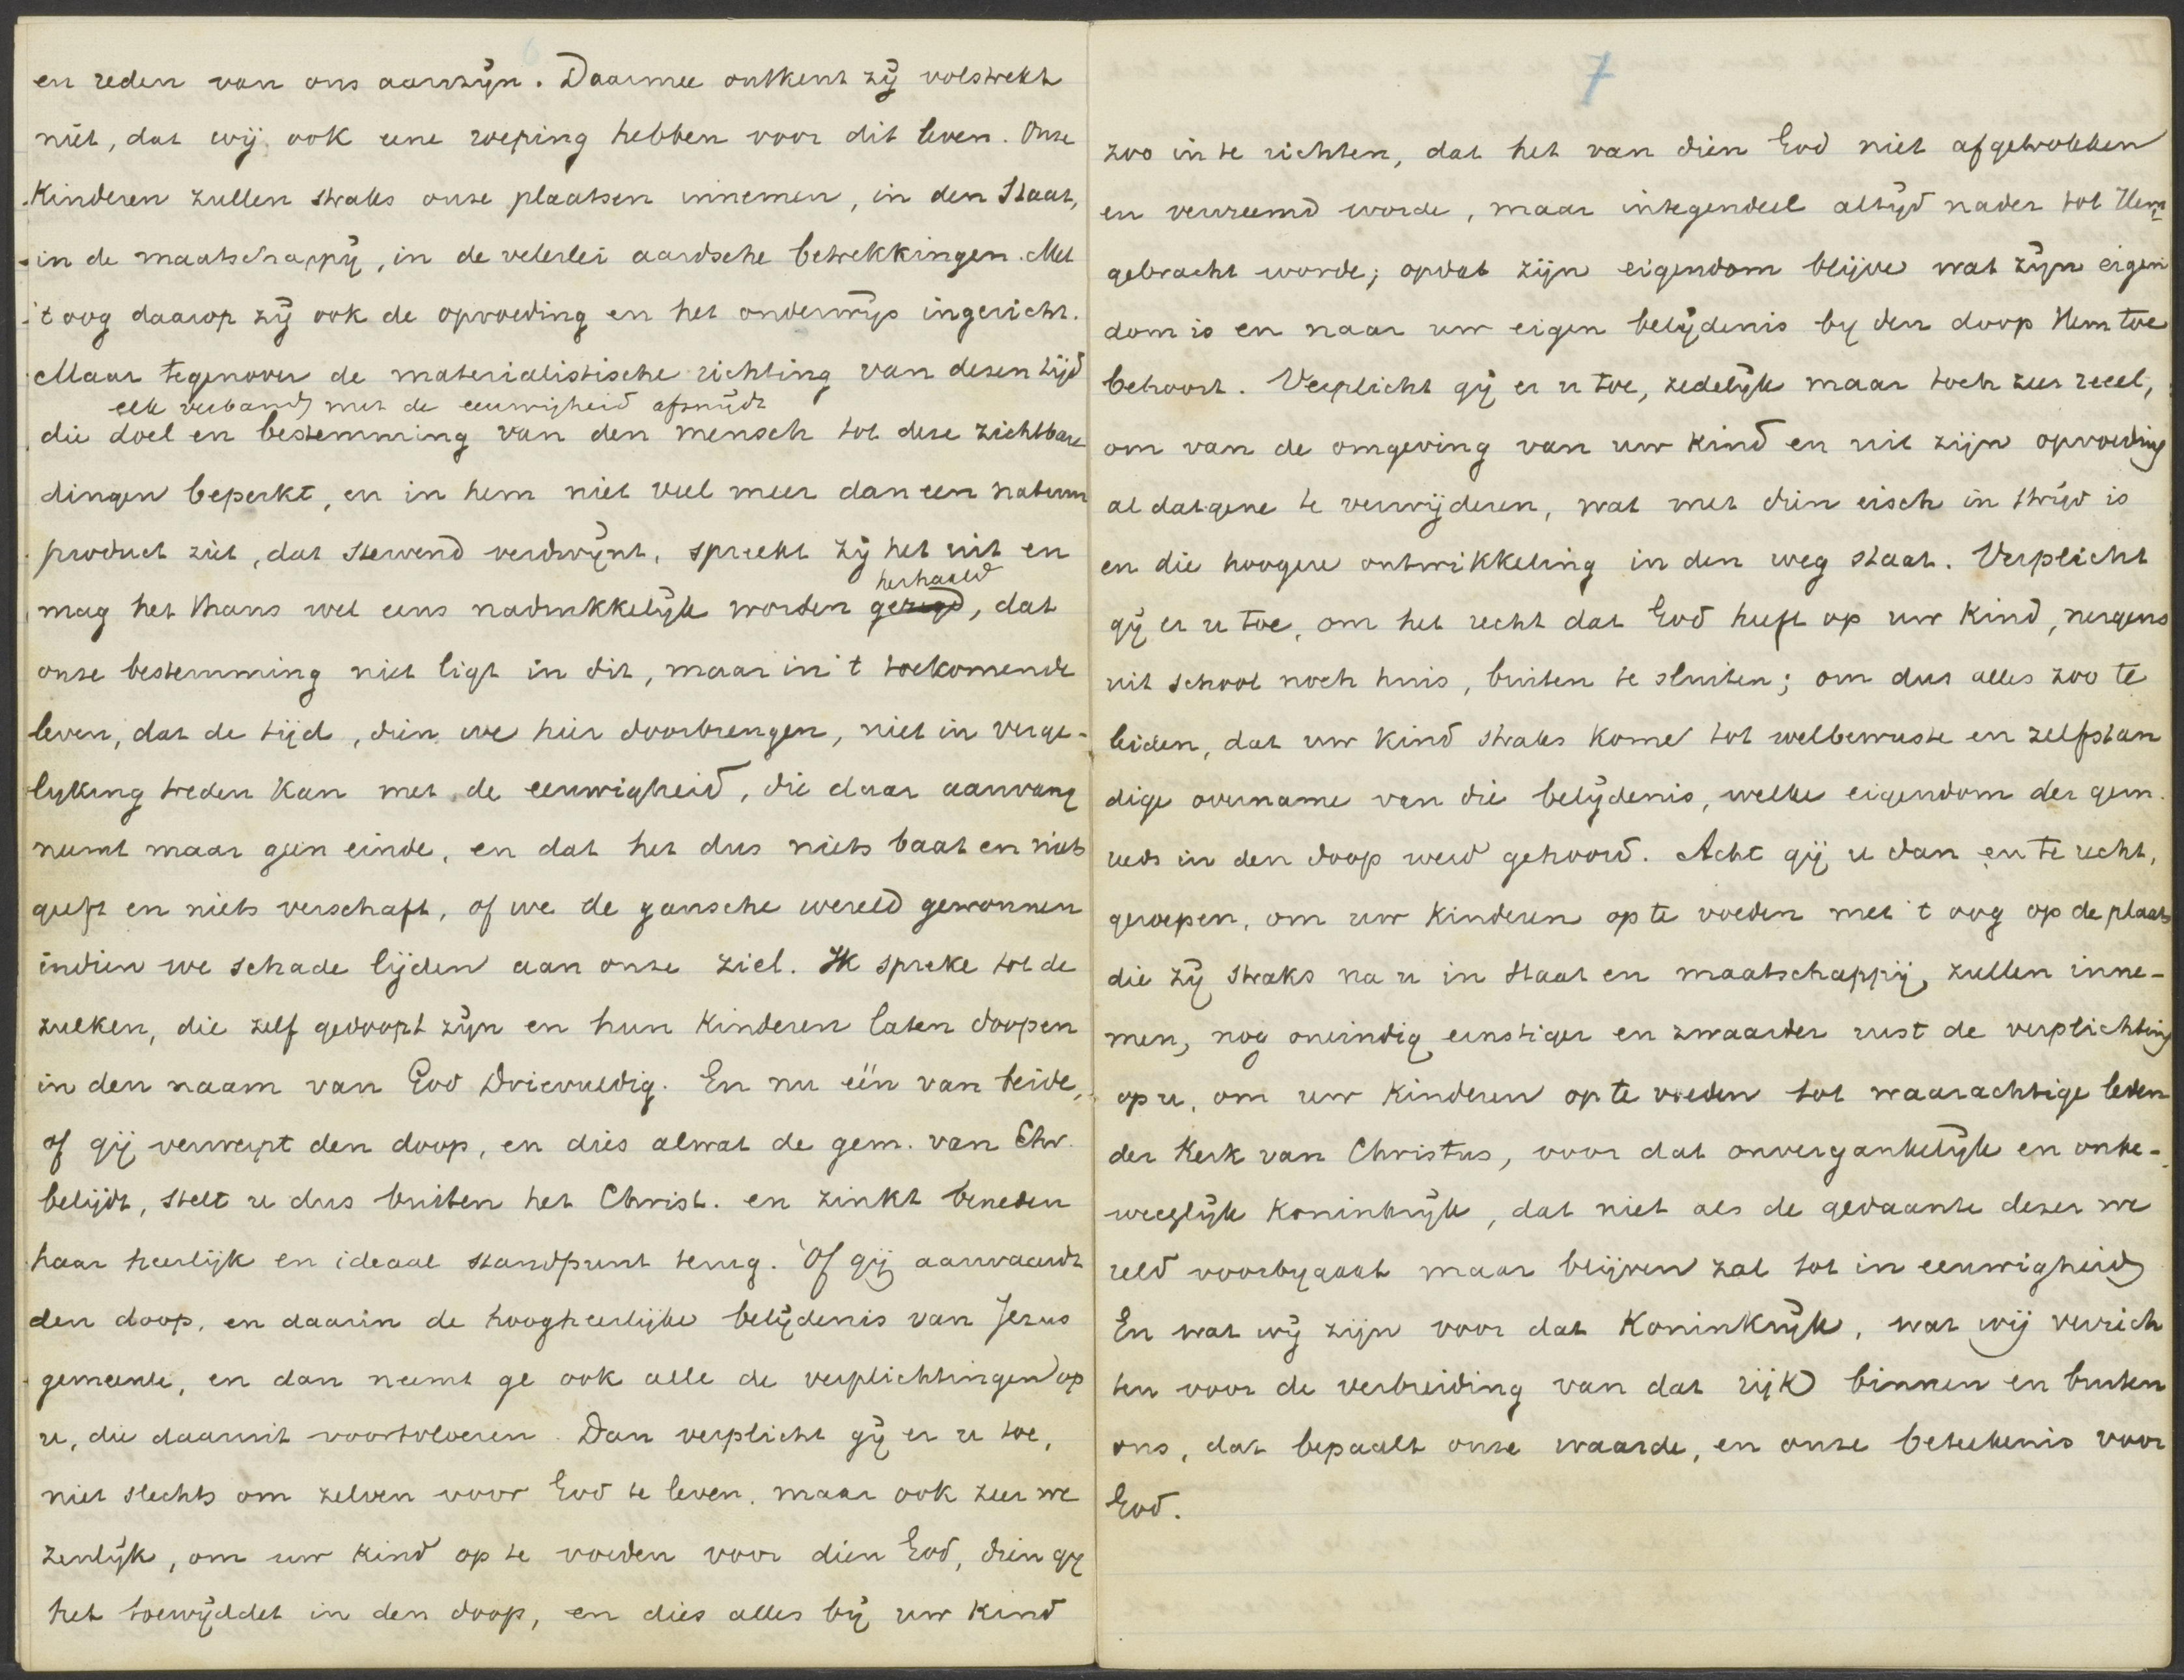 6
en reden van ons aanzijn. Daarmee ontkent zij volstrekt
niet, dat wij ook eene roeping hebben voor dit leven. Onze
kinderen zullen straks onze plaatsen innemen, in den Staat,
in de maatschappij, in de velerlei aardsche betrekkingen. Met
't oog daarop zij ook de opvoeding en het onderwijs ingericht.
Maar tegenover de materialistische richting van dezen tijd
elk verband met de eeuwigheid afsnijdt
die doel en bestemming van den mensch tot deze zichtbare
dingen beperkt, en in hem niet veel meer dan een natuur
product ziet, dat stervend verdwijnt, spreekt zij het uit en
herhaald
mag het thans wel eens nadrukkelijk worden gezegd, dat
onze bestemming niet ligt in dit, maar in 't toekomende
leven, dat de tijd, dien we hier doorbrengen, niet in verge-
lyking treden kan met de eeuwigheid, die daar aanvang
neemt maar geen einde, en dat het dus niets baat en niets
geeft en niets verschaft, of we de gansche wereld gewonnen
indien we schade lijden aan onze ziel. Ik spreke tot de
zulken, die zelf gedoopt zijn en hun kinderen laten doopen
in den naam van God Drievuldig. En nu één van beide,
of gij verwerpt den doop, en dies alwat de gem. van Chr.
belijdt, stelt u dus buiten het Christ. en zinkt beneden
haar heerlijk en ideaal standpunt terug. Of gij aanvaardt
den doop, en daarin de hoogheerlijke belijdenis van Jezus
gemeente, en dan neemt ge ook alle de verplichtingen op
u, die daaruit voortvloeien. Dan verplicht gij er u toe,
niet slechts om zelven voor God te leven, maar ook zeer we
zenlijk, om uw kind op te voeden voor dien God, dien gij
het toewijddet in den doop, en dies alles bij uw kind
7
zoo in te richten, dat het van dien God niet afgetrokken
en vervreemd worde, maar integendeel altijd nader tot Hem
gebracht worde; opdat zijn eigendom blijve wat zijn eigen
dom is en naar uw eigen belijdenis by den doop Hem toe
behoort. Verplicht gij er u toe, zedelijk maar toch zeer reeel,
om van de omgeving van uw kind en uit zijn opvoeding
al datgene te verwijderen, wat met dien eisch in strijd is
en die hoogere ontwikkeling in den weg staat. Verplicht
gij er u toe, om het recht dat God heeft op uw kind, nergens
uit school noch huis, buiten te sluiten; om dus alles zoo te
leiden, dat uw kind straks kome tot welbewuste en zelfstan
dige overname van die belijdenis, welke eigendom der gem.
reeds in den doop werd gehoord. Acht gij u dan en te recht,
geroepen, om uw kinderen op te voeden met 't oog op de plaats
die zij straks na u in Staat en maatschappij, zullen inne-
men, nog oneindig ernstiger en zwaarder rust de verplichting
op u, om uw kinderen op te voeden tot waarachtige leden
der Kerk van Christus, voor dat onvergankelijk en onbe-
weeglijk Koninkrijk, dat niet als de gedaante dezer we
reld voorbygaat maar blijven zal tot in eeuwigheid
En wat wij zijn voor dat Koninkrijk, wat wij verrich
ten voor de verbreiding van dat rijk binnen en buiten
ons, dat bepaalt onze waarde, en onze beteekenis voor
God.